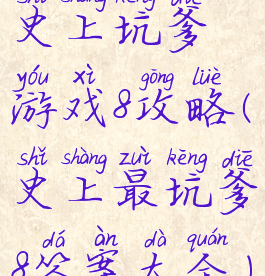 shǐ shàng kēng diē
史上坑爹
yóu xì gōng lüè
游戏8攻略(
shǐ shàng zuì kēng diē
史上最坑爹
dá àn dà quán
8答案大全)